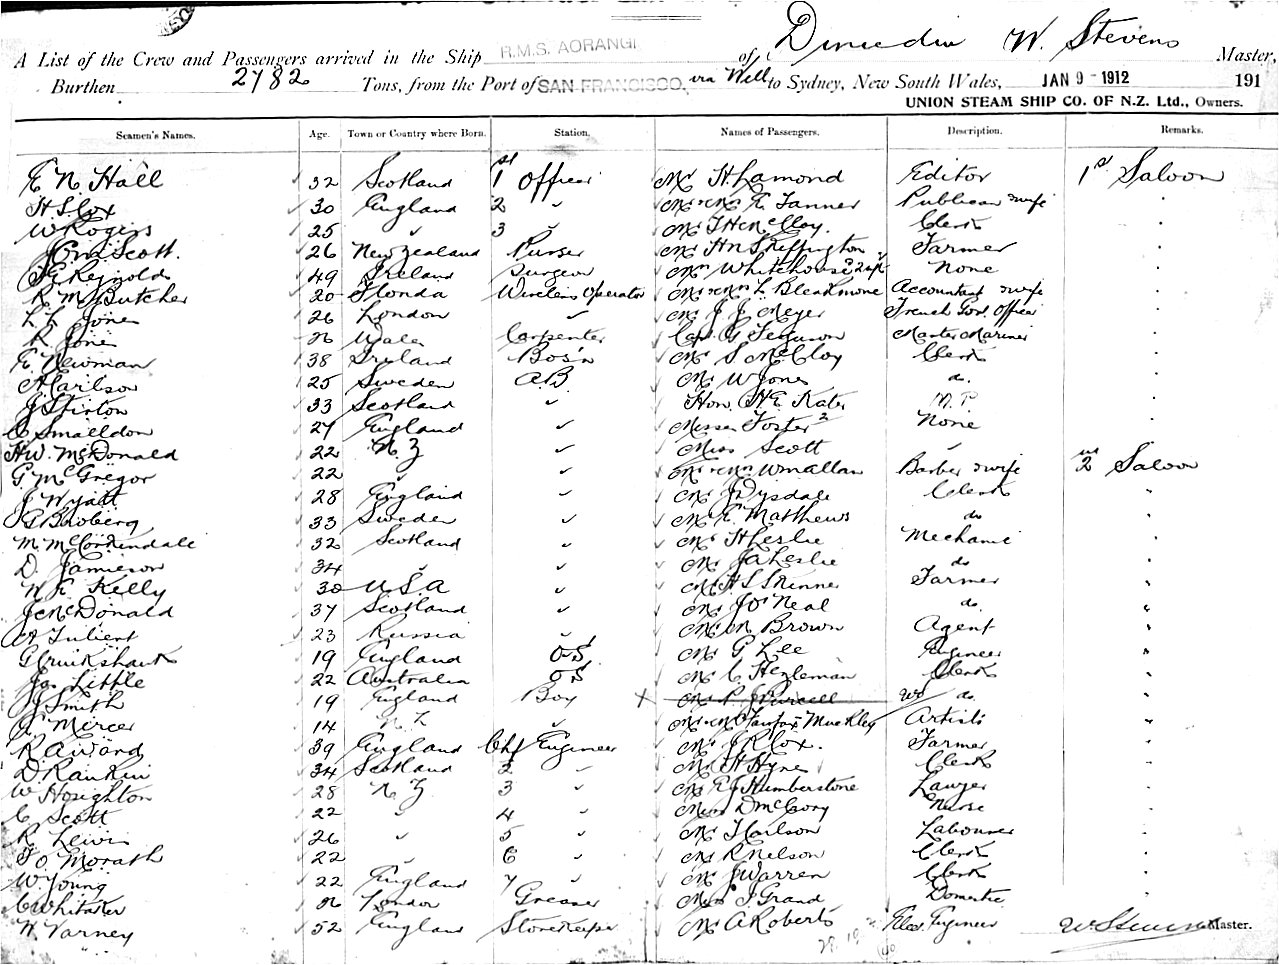 A List of the Crew and Passengers arrived in the Ship R.M.S. AORANGI of Dunedin W. Stevens Master,
Burthen 2782 Tons, from the Port of SAN FRANCISCO, via Well to Sydney, New South Wales, JAN 9 - 1912 191
UNION STEAM SHIP CO. OF N.Z. Ltd., Owners.
Seamen's Names. Age. Town or Country where Born. Station. Names of Passengers. Description. Remarks.
E N Hall 32 Scotland 1st Officer Mr H Lamond Editor 1st Saloon
H S Cox 30 England 2 " Mr & Mrs E Tanner Publican & wife "
W Rogers 25 " 3 " Mr T H McCloy Clerk "
Scott. 26 New Zealand Purser Mr H N Skeffington Farmer "
Reynolds 49 Ireland Surgeon Whitehouse None "
R M Butcher 20 Florida Wireless Operator Mr & Mrs L Bleakmore Accountant & wife "
Jones 26 London " Mr J J Meyer French Gov. Officer "
R Jones Wales Carpenter Capt Ferguson Master Mariner "
E Newman 38 Ireland Bos'n Mr S McCloy Clerk "
A Carlson 25 Sweden A.B. Mr W Jones do. "
J Stirton 33 Scotland " Hon. H E Kater M.P. "
C Smalldon 27 England " Misses Foster 2 None "
H W McDonald 22 N Z " Miss Scott " 2nd Saloon
G McGregor 22 " " Mr & Mrs W Mallan Barber & wife
J Wyatt 28 England " Mr J Dysdale Clerk "
Broberg 33 Sweden " Mr E Matthews do "
M McCorkindale 32 Scotland " Mr H Leslie Mechanic "
D. Jamieson 34 " " Mr J A Leslie do "
Kelly 30 U.S.A " Mr H S Skinner Farmer "
McDonald 37 Scotland " Mr J O'Neal do. "
A Tulient 23 Russia " Mr M Brown Agent "
G Cruikshank 19 England O.S Mr G Lee Engineer "
Jas Little 22 Australia O S Mr C Hezleman Clerk "
J Smith 19 England Boy X Mr P J Purcell do. "
A Mercer 14 N Z " Fairfax Muckley Artists "
R A Ward 39 England Chf Engineer Mr J R Cox. Farmer "
D Rankin 34 Scotland 2 " Mr H Hyne Clerk "
W Houghton 28 N Z 3 " Mr E J Humberstone Lawyer "
C Scott 22 " 4 " Miss D McGory Nurse "
R Lewis 26 " 5 " Mr T Carlson Labourer "
Morath 22 " 6 " Mr R Nelson Clerk "
W. Young 22 England 7 " Mr J Warren Clerk "
C Whitaker London Greaser Miss I Grand Domestic "
W. Varney 52 England Storekeeper Mr A Roberts Elec. Engineer W Stevens Master.